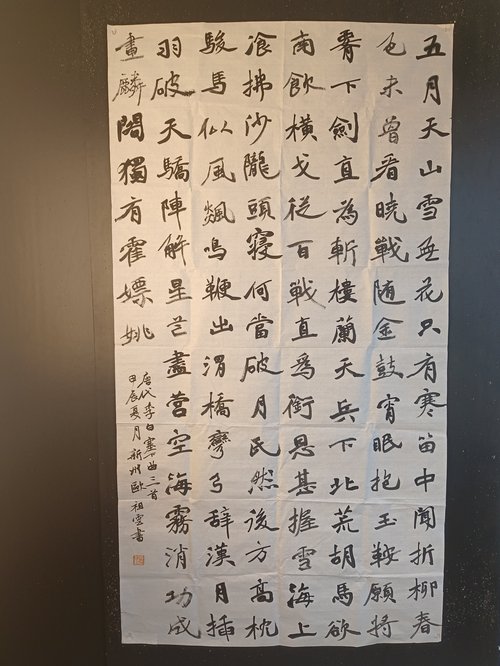 五月天山雪無花只有寒笛中聞折柳春
色未曾看曉戰随金鼓宵眠抱玉鞍願將
腰下劍直為斬樓蘭天兵下北荒胡馬欲
南飲橫戈從百戰直為銜恩甚握雪海上
飡拂沙隴頭寢何當破月民然後方高枕
駿馬似風飈鳴鞭出渭橋彎弓辭漢月插
羽破天驕陣解星芒盡營空海霧消功成
畫麟閣獨有霍嫖姚
唐代李白塞下曲三首
甲辰夏月新州歐祖雲書